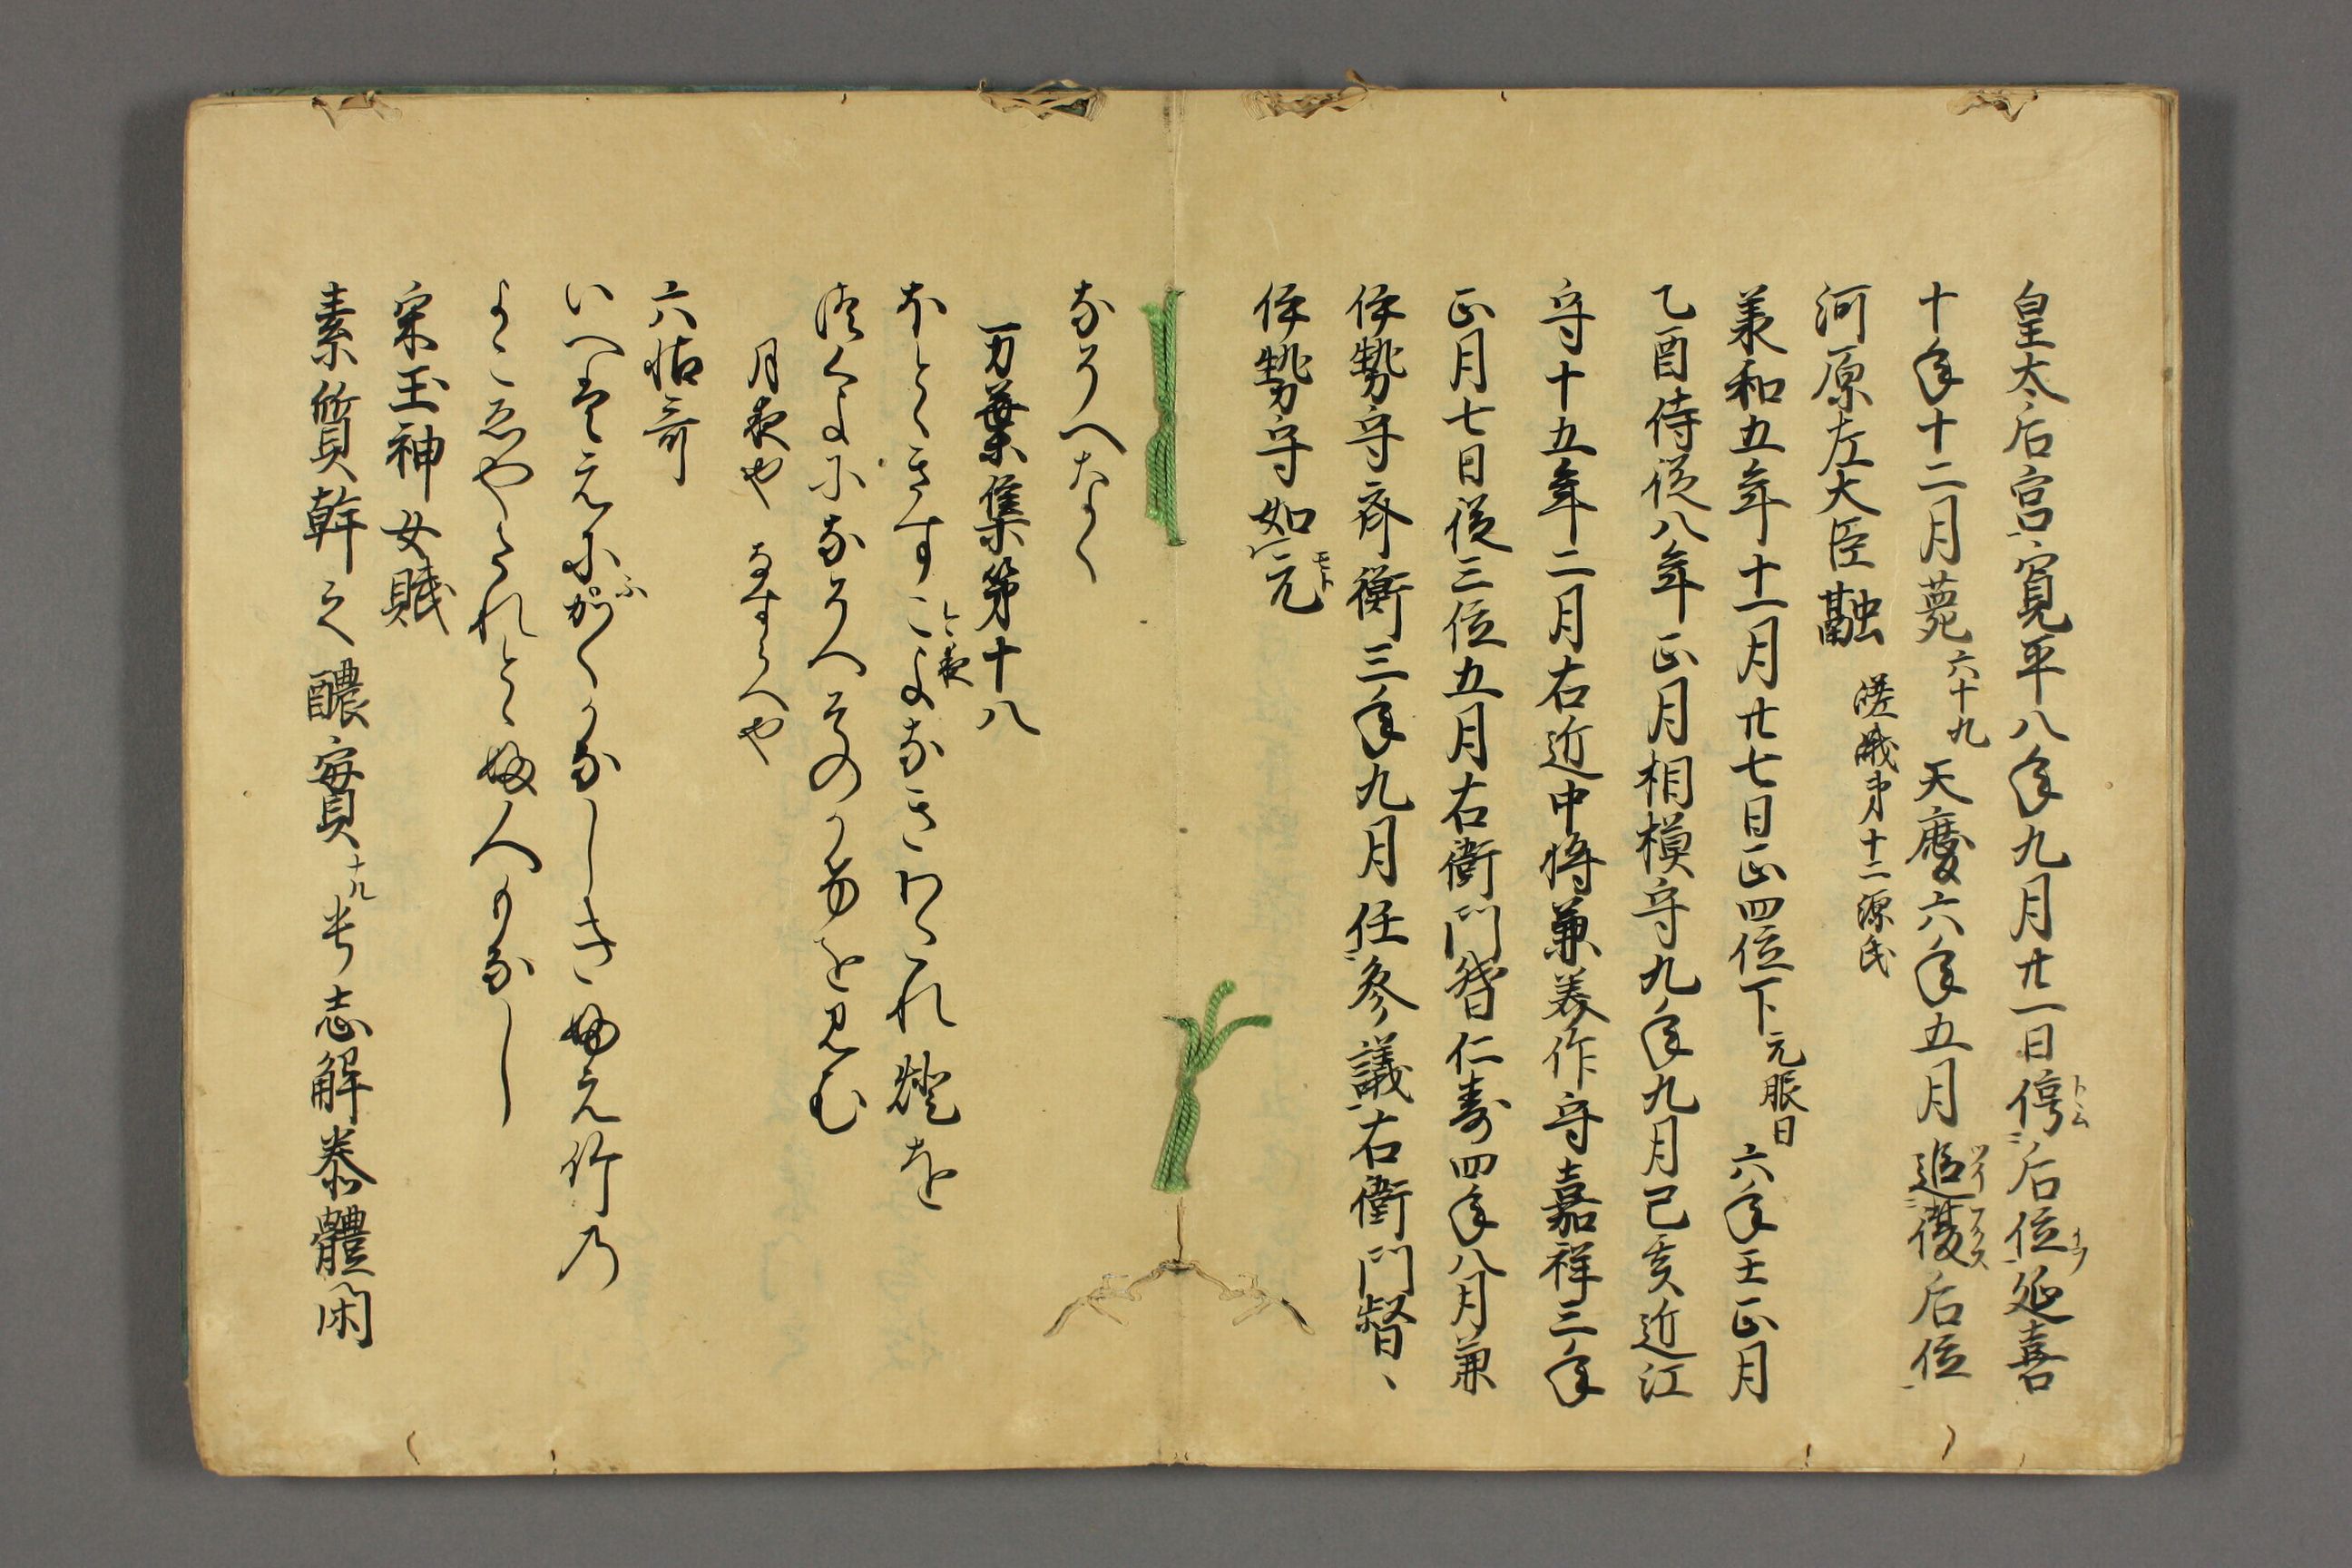 皇太后宮寛平八年九月廿一日停后位延喜
十年十二月薨六十九天慶六年五月追復后位
河原左大臣融 嵯峨第十二源氏
義和五年十一月廿七日正四位下元服日六年壬正月
乙酉侍従八年正月相模守九年九月己亥近江
守十五年二月右近中将兼美作守嘉祥三年
正月七日従三位五月右衛門督仁寿四年八月兼
伊勢守斉衡三年九月任参議右衛門督、
伊勢守如元
なそへなく
万葉集第十八
ほとゝきすこよなきわたれ燈を
月夜になそへそのかけを見む
月夜や なすらへや
六帖哥
いへはえにふかくかなしきふえ竹の
よこゑやたれとゝふ人もなし
宋玉神女賦
素質幹之醲實兮志解泰體閑